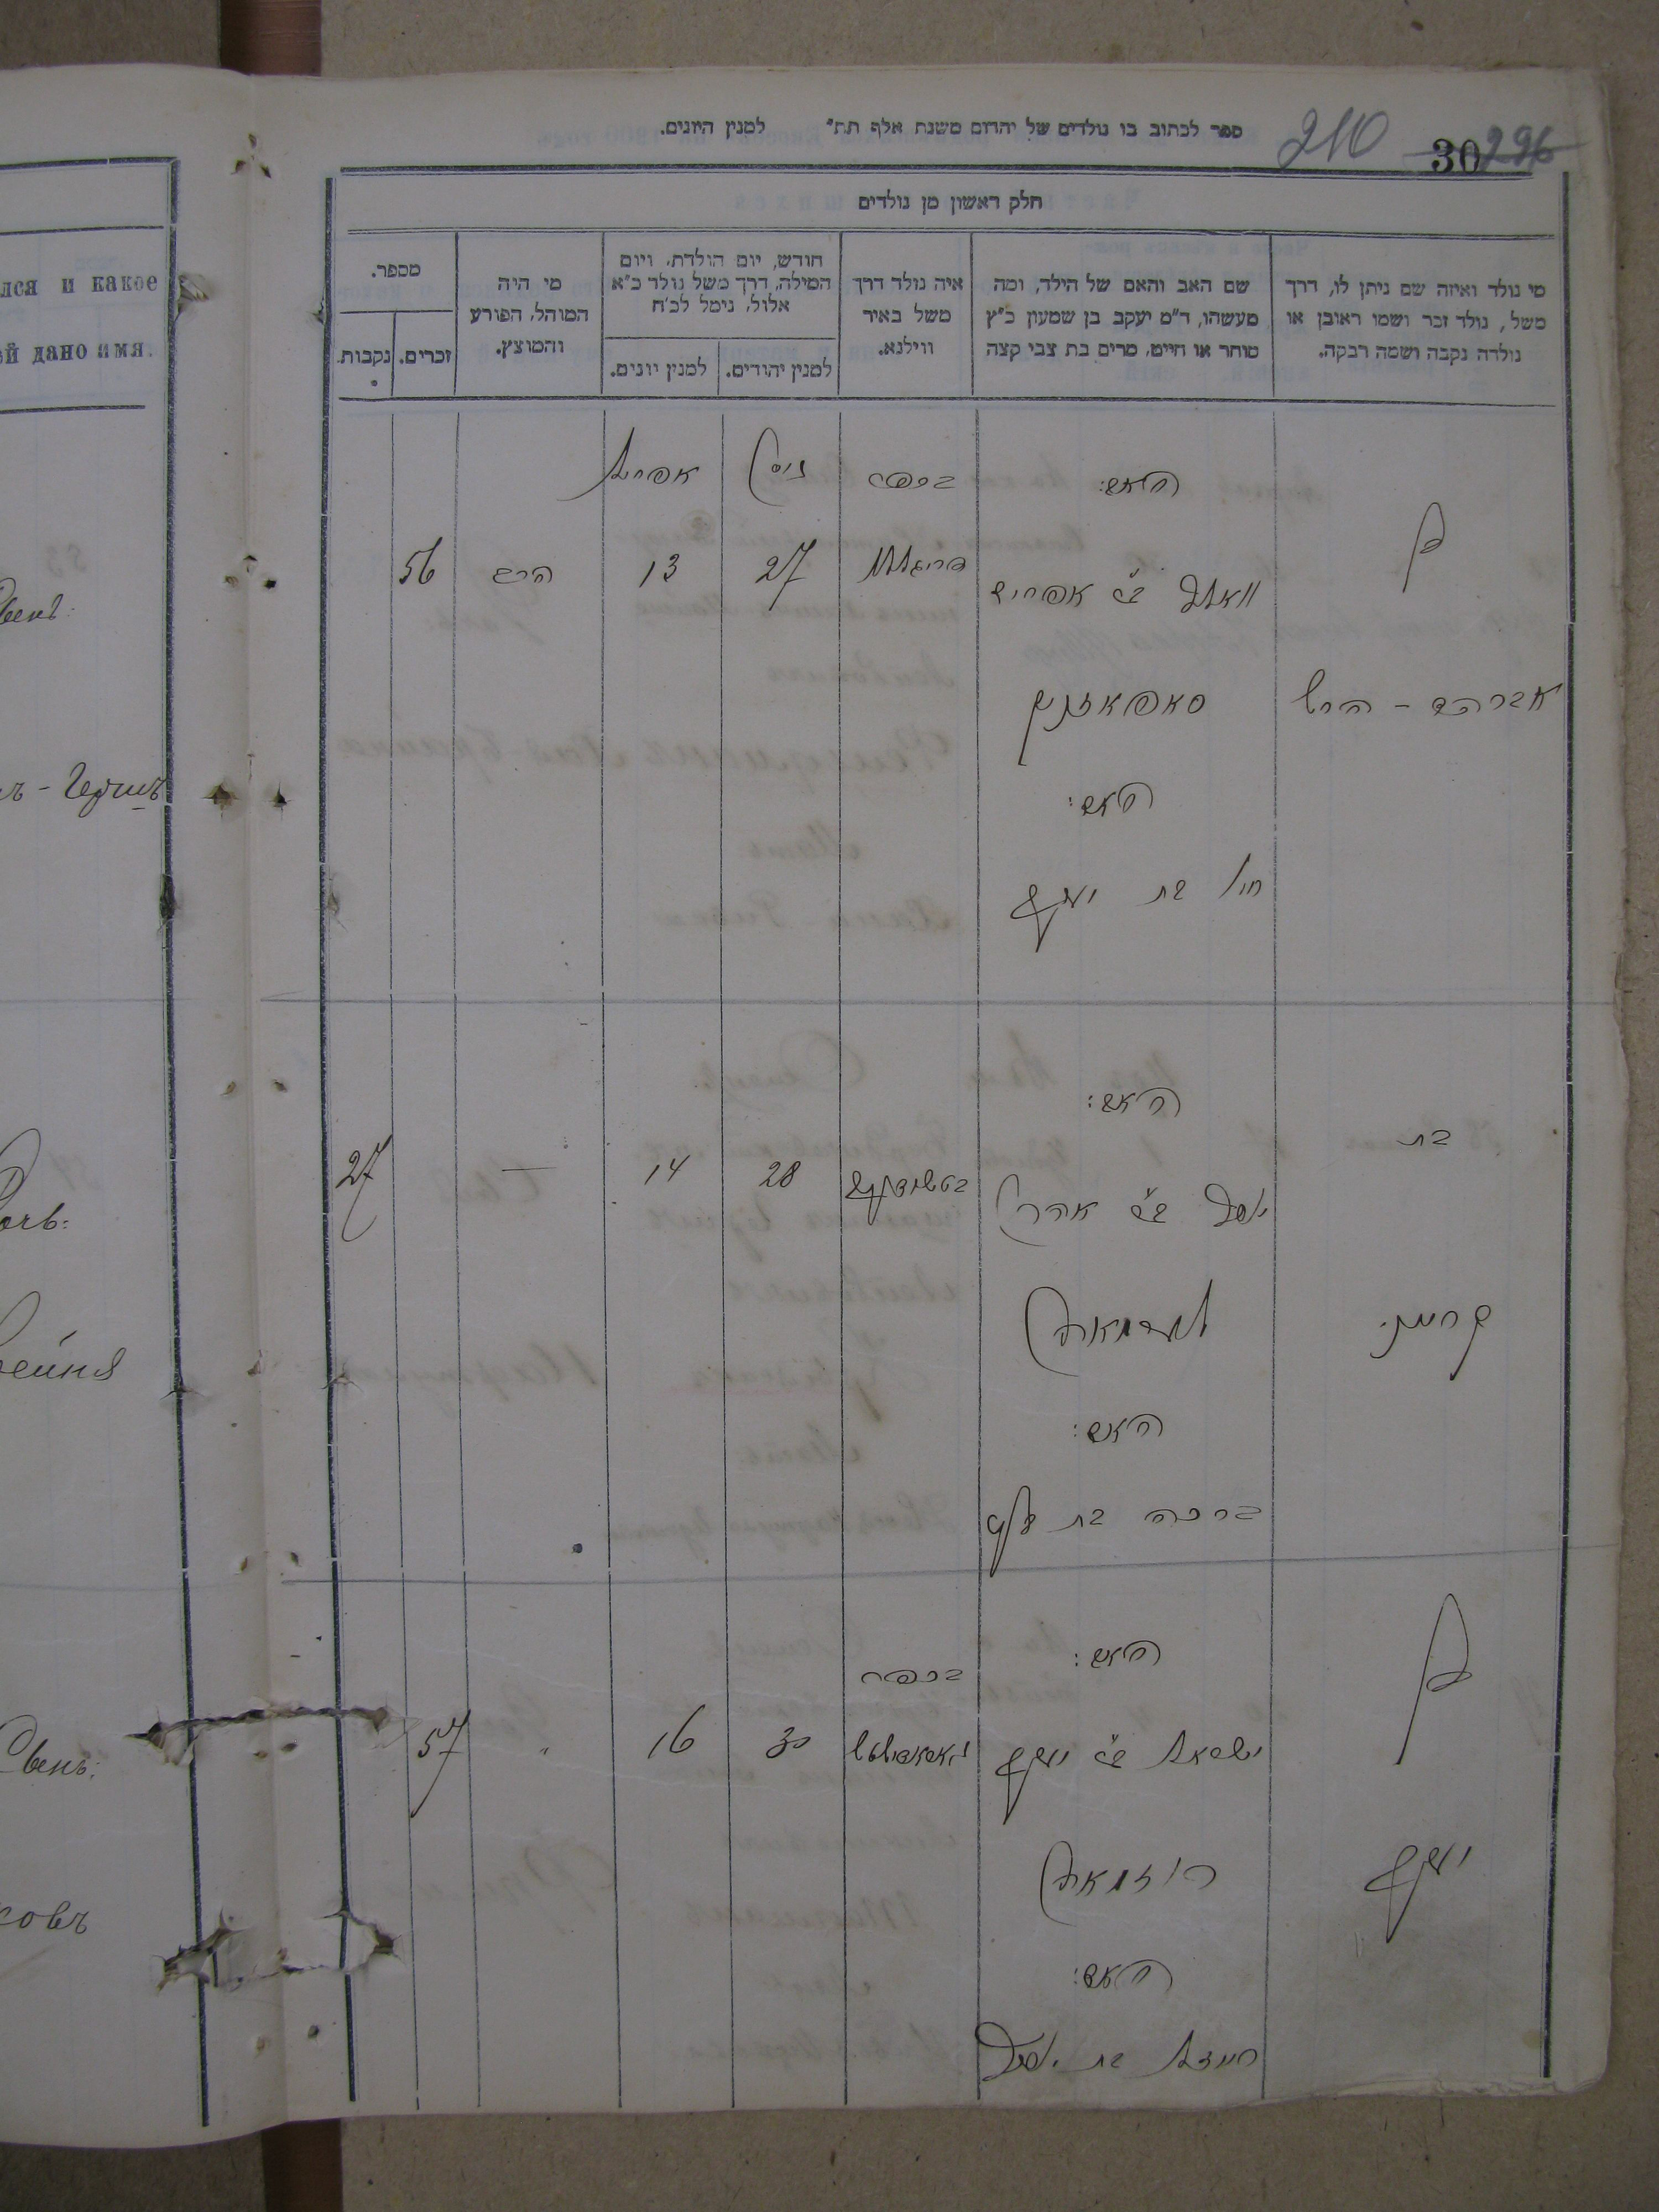 ספר לכתוב בו נולדים של יהדום משנת אלף תת״ למנין היונים.
210
30
296
חלק ראשון מן נולדים
מי נולד ואיזה שם ניתן לו, דרך
משל, נולד זכר ושמו ראובן או
נולדה נקבה ושמה רבקה.
שם האב והאם של הילד, ומה
מעשהו, ד״מ יעקב בן שמעון כ״ץ
סוחר או חייט, מרים בת צבי קצה
איה נולד דרך
משל באיר
ווילנא.
חודש, יום הולדת, ויום
המילה, דרך משל נולד כ״א
אלול, נימל לכ״ח
למנין יהודים.
למנין יונים.
מי היה
המוהל, הפורע
והמוצץ.
מספר.
זכרים.
נקבות.
בן
אברהם - הירש
האב:
וואלף ב״ר אפרים
האם:
בת יעקב
בכפר
ניסן
27
אפריל
13
הרב
56
בת
האב:
יוסף ב״ר אהרן
האם:
ברכה בת
28
14
—
27
בן
יעקב
האב:
ישראל ב״ר יעקב
רוזמאן
האם:
בת יוסף
בכפר
30
16
"
57
лся и какое
ей дано имя.
ъ - Гершъ
Дочь:
Рейня
ковъ